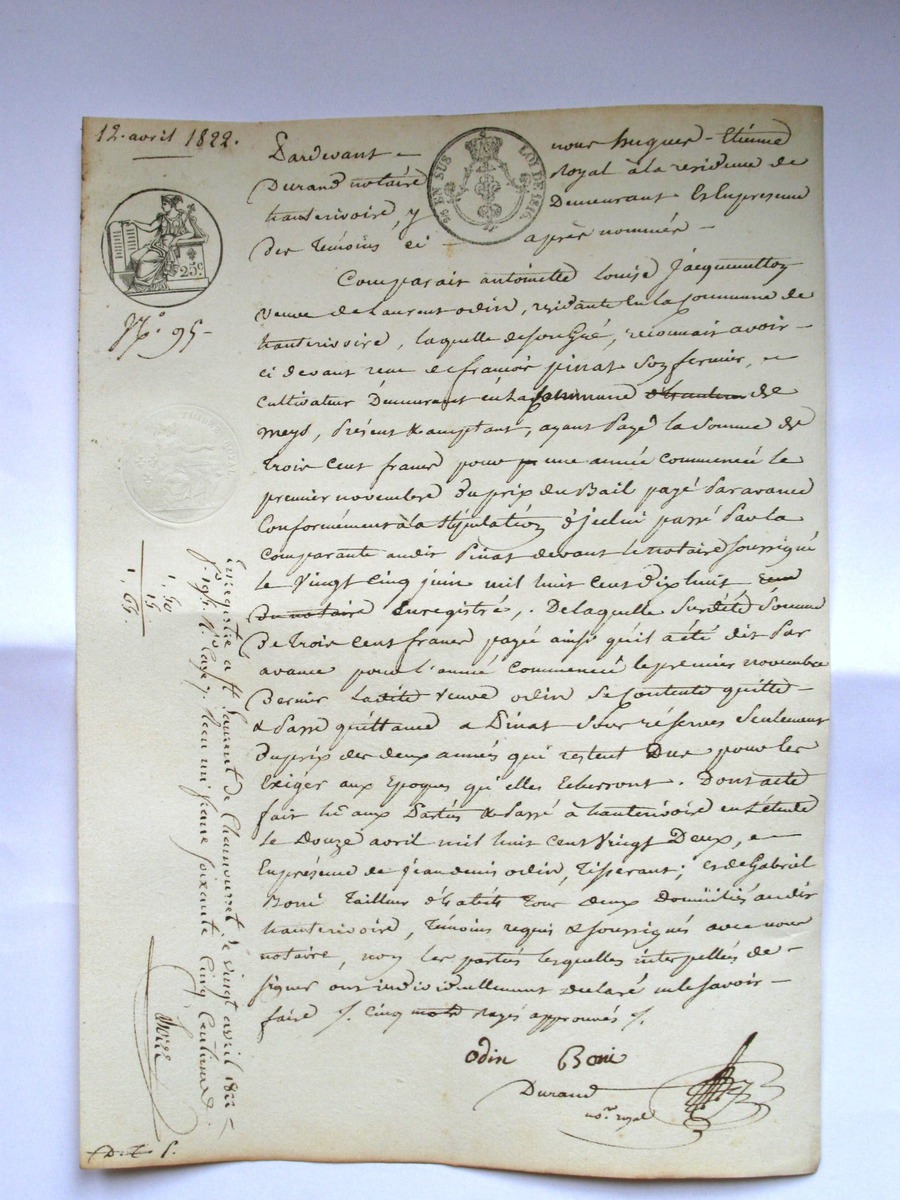 12. avril 1822.
Pardevant nous hugues-Etienne
Durand notaire Royal à la residence de
hauterivoire, y Demeurant Et En presence
Des Témoins ci après nommés
25 EN SUS LOI DE 1816.
25c
N.° 95
Comparait antoinette Louise
veuve de Laurent odin, residante En la Commune de
hauterivoire, laquelle de son Gré, reconnait avoir
ci devant recu de francois pinat Son fermier,
cultivateur Demeurant en la Commune de
meys, présent & acceptant, ayant Payé la Somme de
Trois Cent francs pour une année commencée le
premier novembre Du prix du Bail payé Par avance
Conformément à la Stipulation d'jcelui passé Par la
comparante audit Pinat devant le notaire Soussigné
le vingt cinq juin mil huit cent dix huit
Du notaire Enregistré, De laquelle Susdite Somme
De trois Cent francs payée ainsi qu'il a été dit Par
avance pour l'année Commencée le premier novembre
Dernier Ladite veuve odin Se Contente quitte
& Passe quittance a Pinat Sous réserves Seulement
Du prix des deux années qui restent Due pour les
Exiger aux Epoques qu'elles Echerront. Dont acte
fait lu aux Parties & Passé à hauterivoire en l'étude
Le Douze avril mil huit Cent Vingt Deux,
En présence de jean denis odin, Tisserant; Et de Gabriel
Boni Tailleur d'habits Tous deux Domiciliés audit
hauterivoire, Témoins requis & soussignés avec nous
notaire, non les parties lesquelles interpellées de
signer ont individuellement déclaré ne le savoir
faire ./. Cinq mots rayés approuvés ./.
odin Boni
Durand
no.re royal
1, 50
15
1, 65.
Enregistré a St Laurent de Chamousset le vingt avril 1822
Reçu un franc soixante cinq centimes
D. t. S.